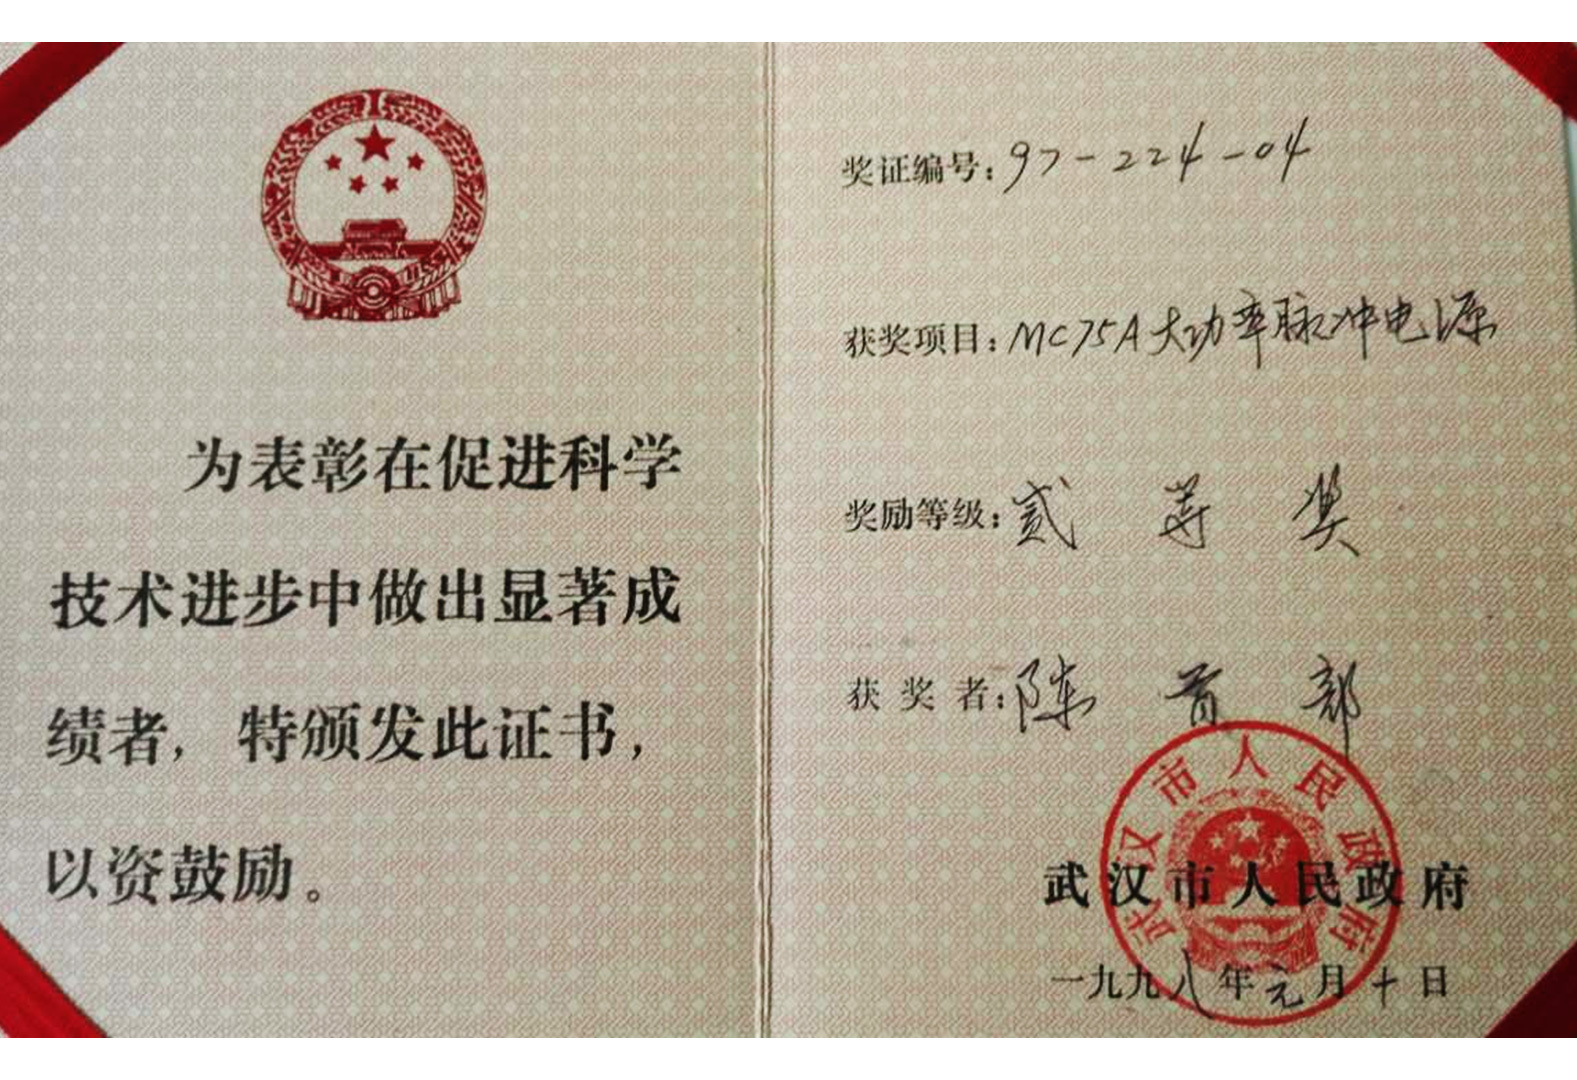 为表彰在促进科学
技术进步中做出显著成
绩者，特颁发此证书，
以资鼓励。
奖证编号：97-224-04
获奖项目：MC75A大功率脉冲电源
奖励等级：贰等奖
获奖者：陈首部
武汉市人民政府
武汉市人民政府
一九九八年元月十日